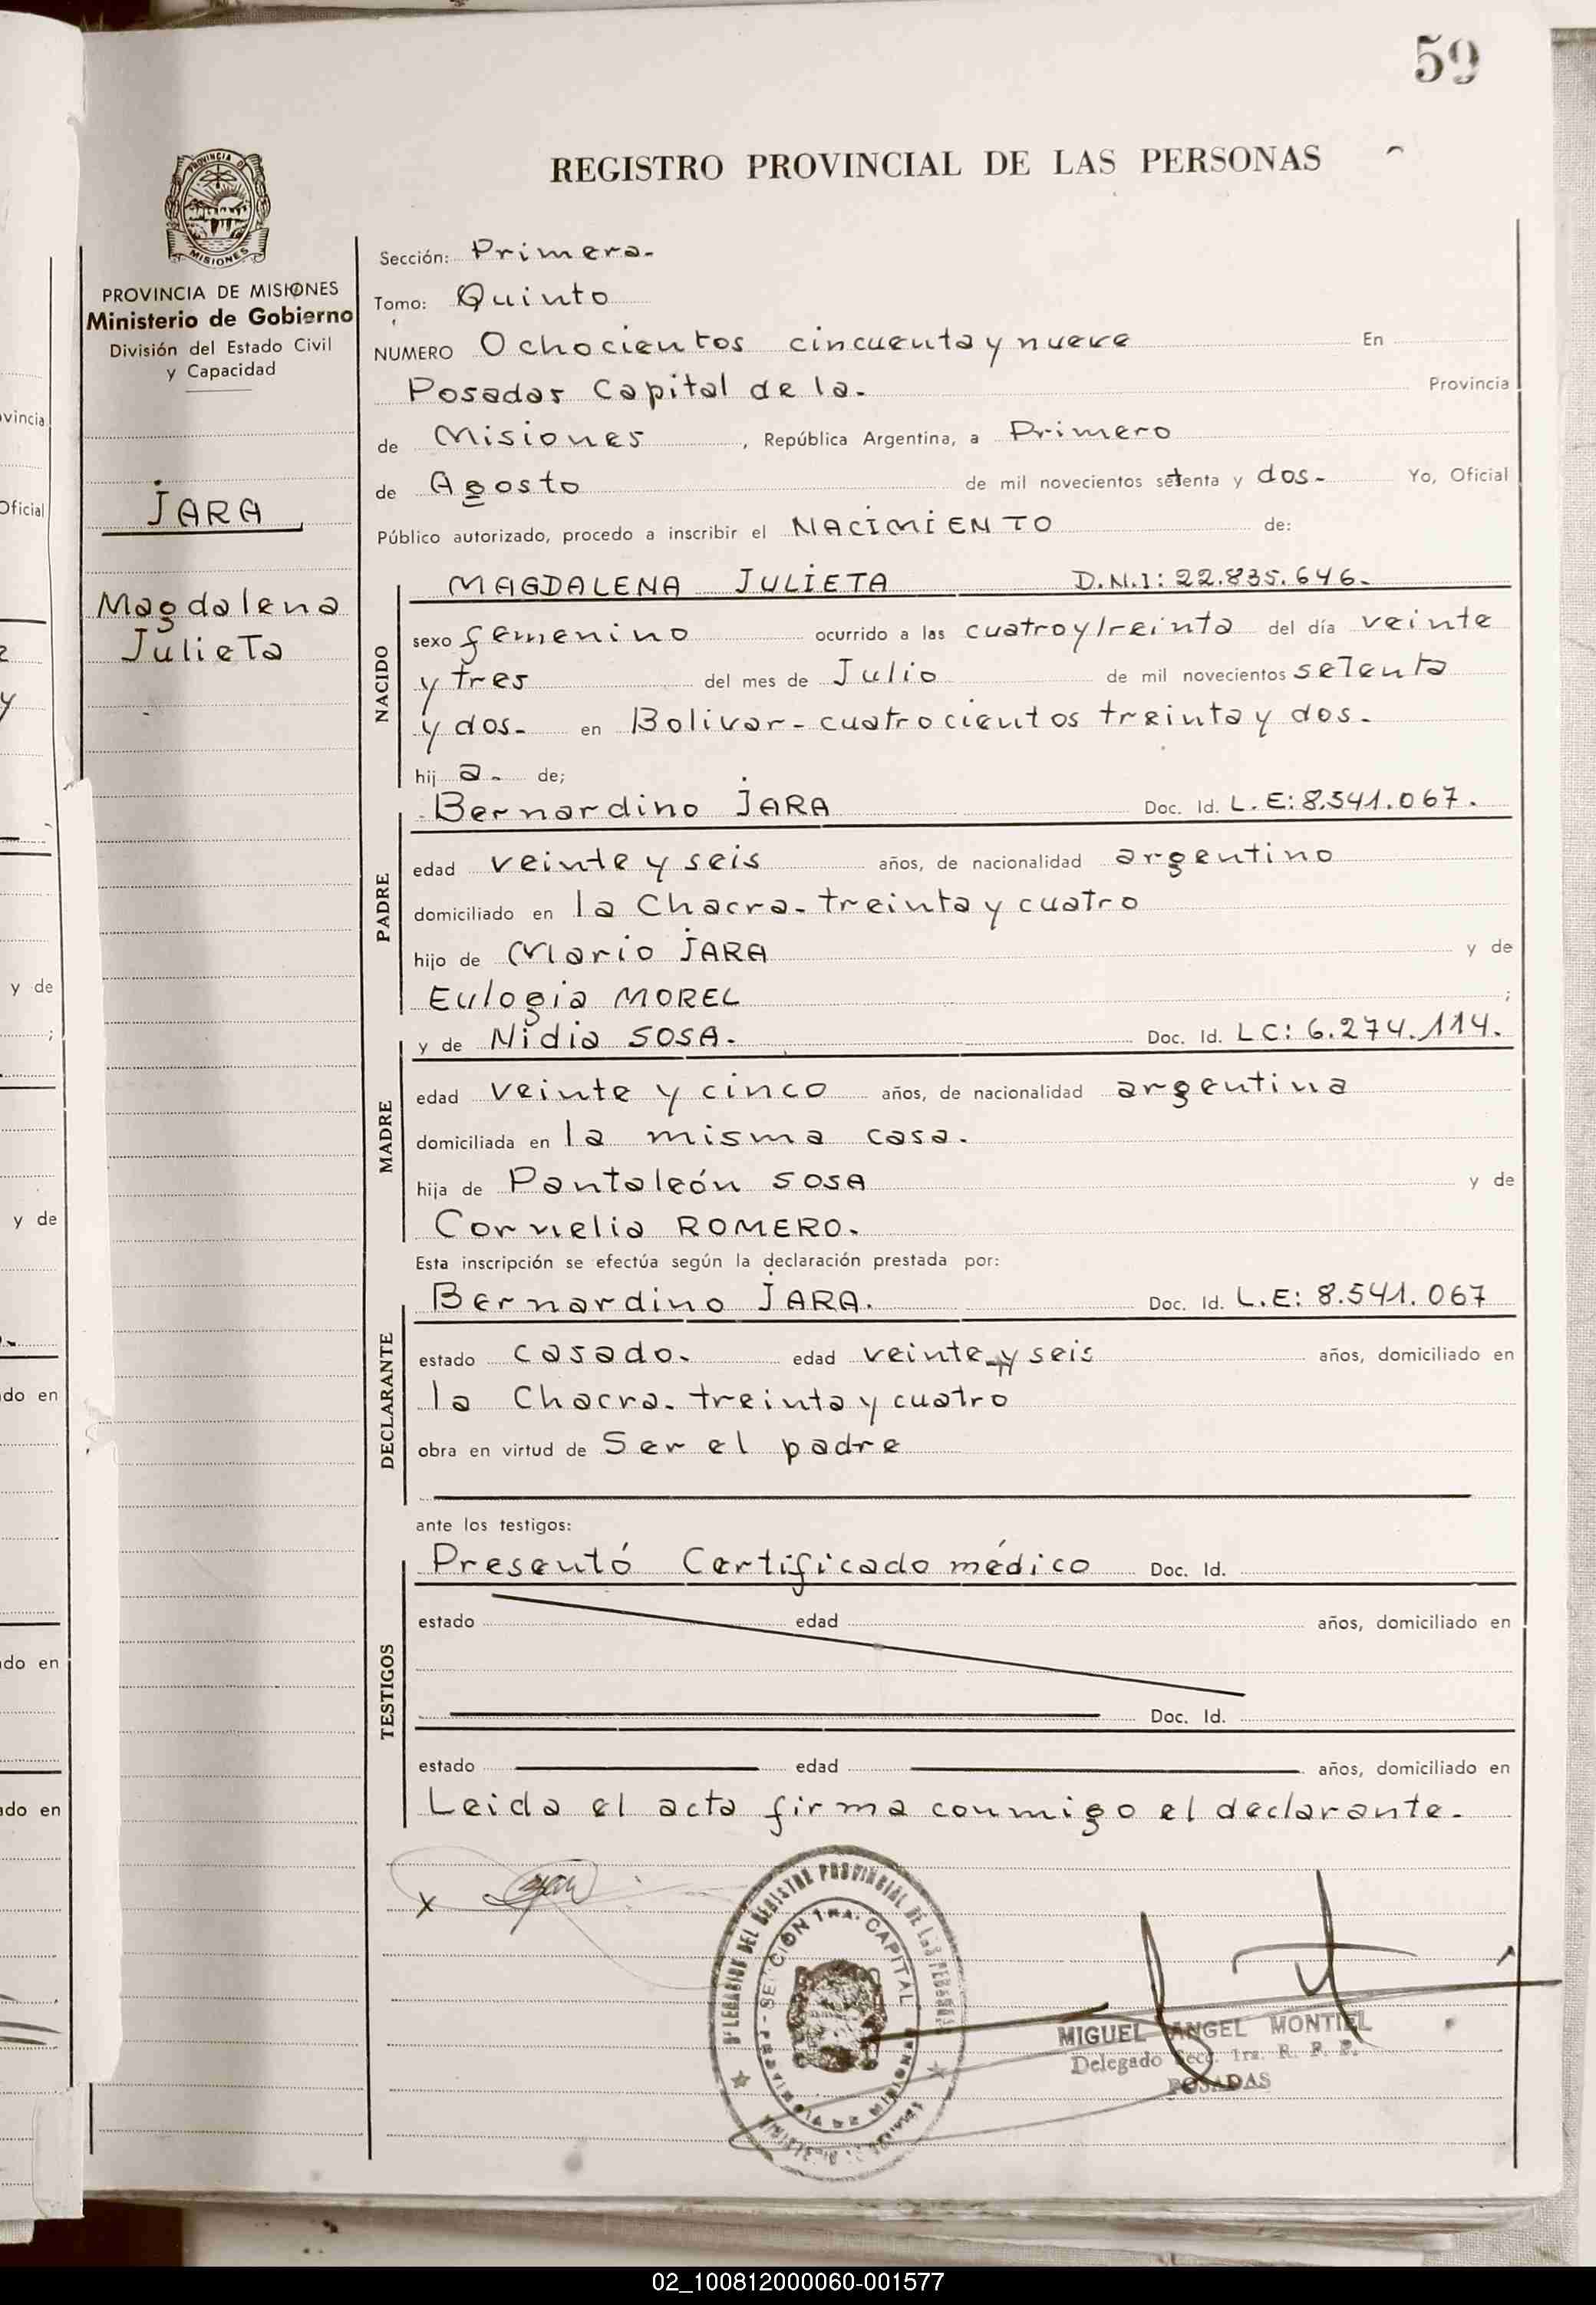 59
REGISTRO PROVINCIAL DE LAS PERSONAS
PROVINCIA DE MISIONES
MISIONES
PROVINCIA DE MISIONES
Ministerio de Gobierno
División del Estado Civil
y Capacidad
JARA
Magdalena
Julieta
Sección: Primera.-
Tomo: Quinto
NUMERO Ochocientos cincuenta y nueve En
Posadas Capital de la.- Provincia
de Misiones, República Argentina, a Primero
de Agosto de mil novecientos setenta y dos.- Yo, Oficial
Público autorizado, procedo a inscribir el NACIMIENTO de:
NACIDO
MAGDALENA JULIETA D.N.I: 22.835.646.-
sexo femenino ocurrido a las cuatro y treinta del día veinte
y tres del mes de Julio de mil novecientos setenta
y dos.- en Bolivar - cuatrocientos treinta y dos.-
hij a.- de;
PADRE
Bernardino JARA Doc. Id. L.E: 8.541.067.
edad veinte y seis años, de nacionalidad argentino
domiciliado en la Chacra - treinta y cuatro
hijo de Mario JARA y de
Eulogia MOREL ;
MADRE
y de Nidia SOSA.- Doc. Id. LC: 6.274.114.
edad veinte y cinco años, de nacionalidad argentina
domiciliada en la misma casa.
hija de Pantaleón SOSA y de
Cornelia ROMERO.
Esta inscripción se efectúa según la declaración prestada por:
DECLARANTE
Bernardino JARA. Doc. Id. L.E: 8.541.067
estado casado.- edad veinte y seis años, domiciliado en
la Chacra - treinta y cuatro
obra en virtud de Ser el padre
ante los testigos:
TESTIGOS
Presentó Certificado médico Doc. Id.
estado edad años, domiciliado en
Doc. Id.
estado edad años, domiciliado en
Leida el acta firma conmigo el declarante.-
x
DELEGACION DEL REGISTRO PROVINCIAL DE LAS PERSONAS
SECCION 1RA. CAPITAL
PROVINCIA DE MISIONES
MIGUEL ANGEL MONTIEL
Delegado Secc. 1ra. R. P. P.
POSADAS
vincia
Oficial
y de
;
y de
do en
do en
ado en
02_100812000060-001577